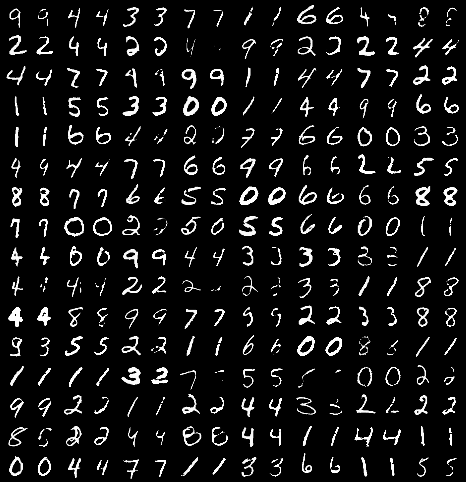 9 9 4 4 3 3 7 7 1 1 6 6 4 4 8 8
2 2 4 4 2 2 4 9 9 2 2 2 2 4 4
4 4 7 7 9 9 9 9 1 1 4 4 7 7 2 2
1 1 5 5 3 3 0 0 1 1 4 4 9 9 6 6
1 1 6 6 4 4 2 2 7 7 6 6 0 0 3 3
9 9 4 4 7 7 6 6 9 9 6 6 2 2 5 5
8 8 7 7 6 6 5 5 0 0 6 6 6 6 8 8
7 7 0 0 2 2 5 0 5 5 6 6 0 0 1 1
4 4 0 0 9 9 4 4 3 3 3 3 3 3 1 1
4 4 4 4 2 2 2 2 2 3 3 1 1 8 8
4 4 8 8 9 9 7 7 9 9 2 2 3 3 8 8
9 3 5 5 2 2 1 1 6 6 0 0 8 8 1 1
1 1 1 1 3 2 7 5 5 5 0 0 2 2
9 9 2 2 1 1 2 2 4 4 3 3 2 2 2 2
8 5 2 2 4 4 8 8 4 4 1 1 4 4 1 1
0 0 4 4 7 7 1 1 3 3 6 6 1 1 5 5